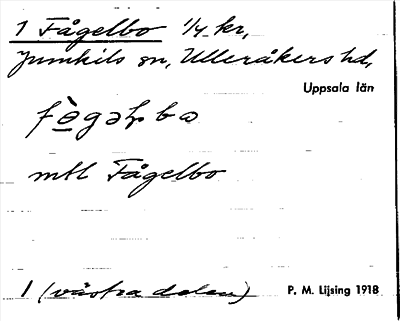 1 Fågelbo 1/4 kr,
Jumkils sn, Ulleråkers hd,
Uppsala län
mtl Fågelbo
1 (västra delen) P. M. Lijsing 1918